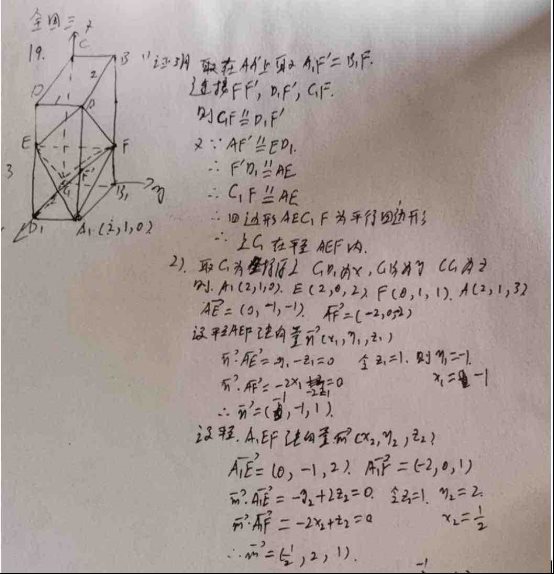 全国三
19.
1)证明 取在AA'上取A₁F'=B₁F.
连接FF', D₁F', C₁F.
则C₁F∥=D₁F'
又∵AF'∥=ED₁
∴F'D₁∥=AE
∴C₁F∥=AE
∴四边形AEC₁F为平行四边形
∴C₁在平面AEF内.
2). 取C₁为坐标原点 C₁D₁为x, C₁B₁为y CC₁为z
则. A₁(2,1,0). E(2,0,2) F(0,1,1). A(2,1,3)
AE→=(0,-1,-1). AF→=(-2,0,-2)
设平面AEF法向量n→(x₁,y₁,z₁)
n→·AE→=-y₁-z₁=0 令z₁=1. 则y₁=-1.
n→·AF→=-2x₁-2z₁=0 x₁=-1
∴n→=(-1,-1,1).
设平面A₁EF法向量m→(x₂,y₂,z₂)
A₁E→=(0,-1,2). A₁F→=(-2,0,1)
m→·A₁E→=-y₂+2z₂=0. 令z₂=1. y₂=2.
m→·A₁F→=-2x₂+z₂=0 x₂=1/2
∴m→=(1/2,2,1).
C
B
2
D
E
F
3
B₁
y
D₁
A₁(2,1,0)